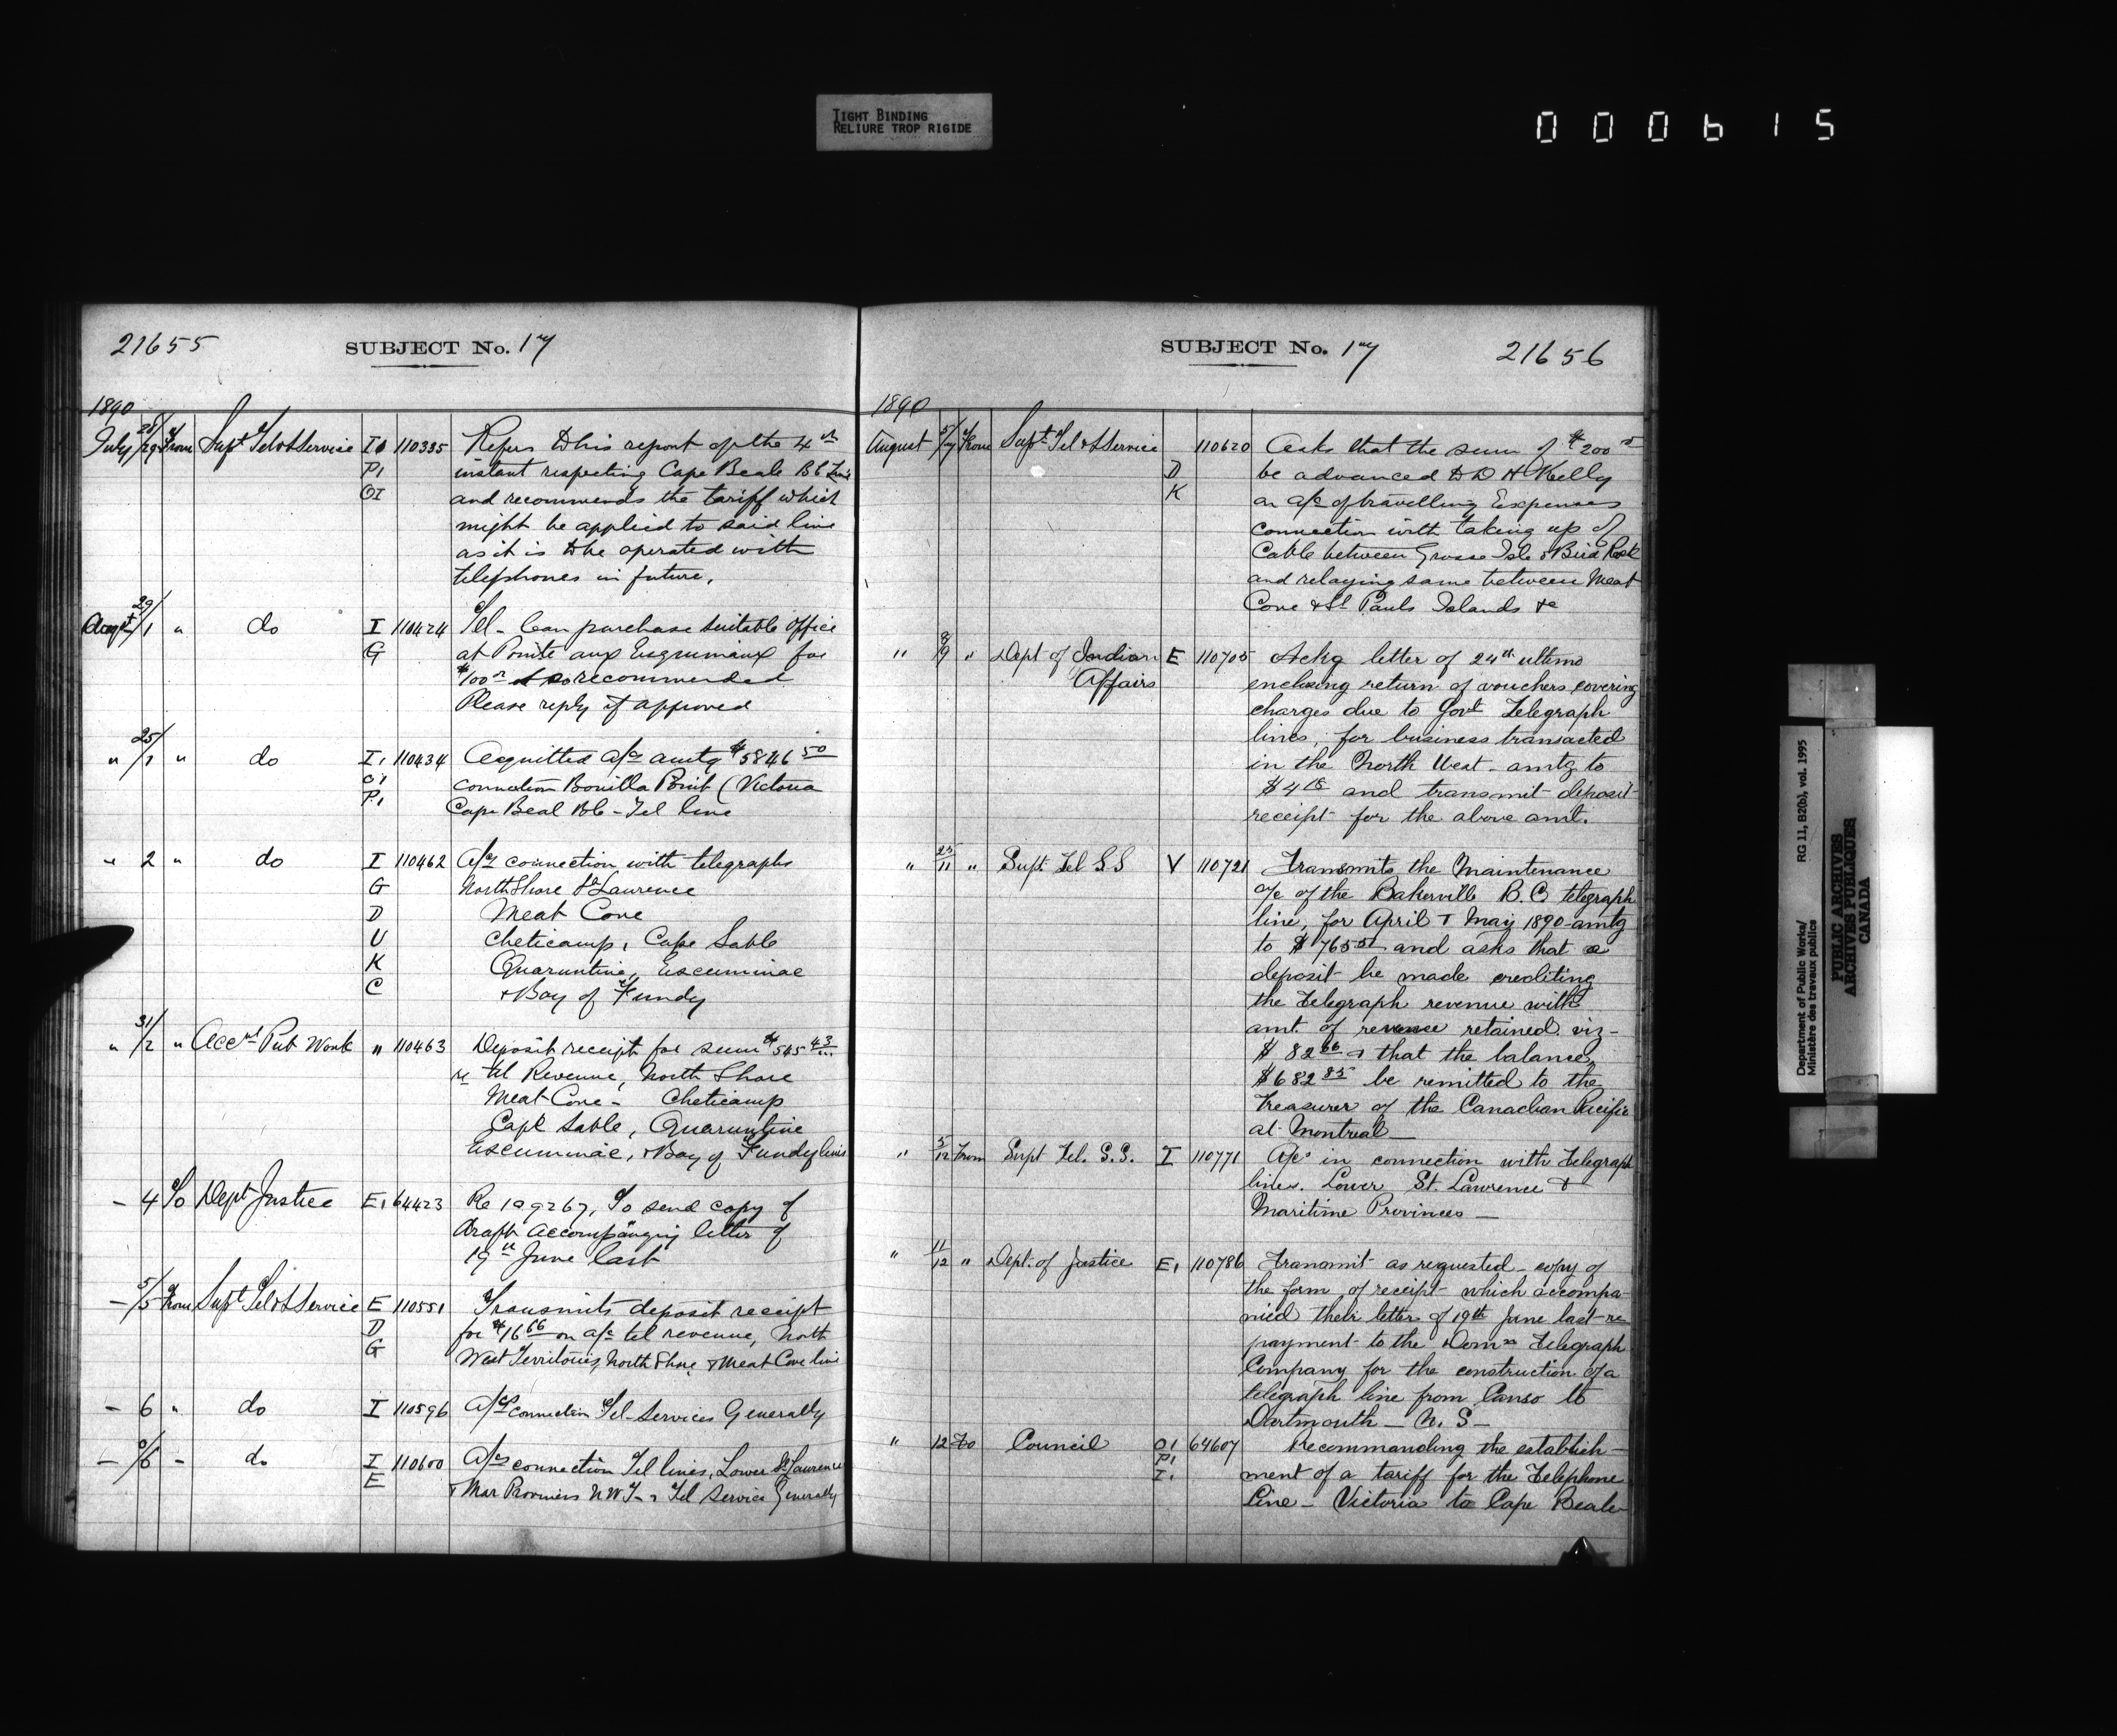 TIGHT BINDING
RELIURE TROP RIGIDE
000615
21655
SUBJECT No. 17
1890
July 28/29 From Supt Tel & S Service I1 110335 Refers to his report of the 4th
P1 instant respecting Cape Beale B C Line
OI and recommends the tariff which
might be applied to said line
as it is to be operated with
telephones in future.
Augst 29/1 " do I 110424 Tel - Can purchase suitable office
G at Pointe aux Esquimaux for
$100 recommended
Please reply if approved
" 25/1 " do I1 110434 Acquitted a/cs amtg $5846 50
O1 connection Bonilla Point (Victoria
P1 Cape Beal B C - Tel line
" 2 " do I 110462 A/cs connection with telegraphs
G North Shore St Lawrence
D Meat Cove
U Cheticamp, Cape Sable
K Quaruntine, Escuminac
C & Bay of Fundy
" 31/2 " Acct Pub Work " 110463 Deposit receipt for sum $545 43
re tel Revenue, North Shore
Meat Cove - Cheticamp
Cape Sable, Quaruntine
Escuminac, & Bay of Fundy lines
- 4 To Dept Justice E1 64423 Re 109267, To send copy of
draft accompanying letter of
19th June last
- 5/5 From Supt Tel & S Service E 110551 Transmits deposit receipt
D for $16 66 on a/c tel revenue, North
G West Territories, North Shore & Meat Cove line
- 6 " do I 110596 A/cs connection Tel - Services Generally
- /6 - do I 110600 A/cs connection Tel lines, Lower St Lawrence
E & Mar Provinces N W T - & Tel Service Generally
SUBJECT No. 17
21656
1890
August 5/7 From Supt Tel & S Service 110620 Asks that the sum of $200
D be advanced to D H Kelly
K on a/c of travelling Expenses
connection with taking up of
Cable between Grosse Isle & Bird Rock
and relaying same between Meat
Cove & St Pauls Islands &c
" 8/9 " Dept of Indian E 110705 Ackg letter of 24th ultimo
Affairs enclosing return of vouchers covering
charges due to Govt Telegraph
lines, for business transacted
in the North West - amtg to
$4 18 and transmit deposit
receipt for the above amt.
" 25/11 " Supt Tel S.S V 110721 Transmits the Maintenance
a/c of the Bakerville B.C. telegraph
line, for April & May 1890 amtg
to $765 51 and asks that a
deposit be made crediting
the Telegraph revenue with
amt. of revenue retained. viz -
$ 82 66 & that the balance,
$682 85 be remitted to the
Treasurer of the Canadian Pacific
at Montreal -
" 5/12 From Supt Tel. S.S. I 110771 A/cs in connection with Telegraph
lines. Lower St. Lawrence &
Maritime Provinces -
" 11/12 " Dept. of Justice E1 110786 Transmit as requested - copy of
the form of receipt which accompa-
nied their letter of 19th June last - re
payment to the Domn Telegraph
Company for the construction of a
telegraph line from Canso to
Dartmouth - N.S -
" 12 To Council O1 64607 Recommanding the establish-
P1 ment of a tariff for the Telephone
I1 Line - Victoria to Cape Beale
Department of Public Works/
Ministère des travaux publics
RG 11, B2(b), vol. 1995
PUBLIC ARCHIVES
ARCHIVES PUBLIQUES
CANADA